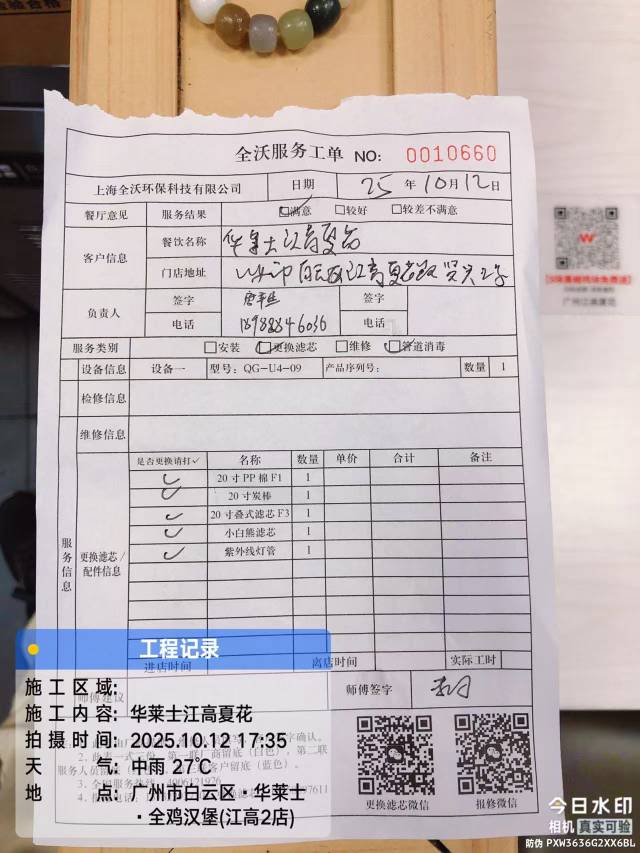 全沃服务工单 NO: 0010660
上海全沃环保科技有限公司 日期 25 年 10 月 12 日
餐厅意见 服务结果 满意 较好 较差不满意
客户信息 餐饮名称 华莱士江高夏花
门店地址
负责人 签字 签字
电话 18988846036 电话
服务类别 安装 更换滤芯 维修 管道消毒
设备信息 设备一 型号: QG-U4-09 产品序列号: 数量 1
检修信息
维修信息
服务信息
更换滤芯/配件信息
是否更换请打✓ 名称 数量 单价 合计 备注
✓ 20寸PP棉F1 1
✓ 20寸炭棒 1
✓ 20寸叠式滤芯F3 1
✓ 小白熊滤芯 1
✓ 紫外线灯管 1
进店时间 离店时间 实际工时
师傅建议 师傅签字
工程记录
施工区域:
施工内容: 华莱士江高夏花
拍摄时间: 2025.10.12 17:35
天气: 中雨 27℃
地点: 广州市白云区·华莱士
·全鸡汉堡(江高2店)
更换滤芯微信 报修微信
广州江高夏花
今日水印
相机 真实可验
防伪 PXW3636G2XX6BL